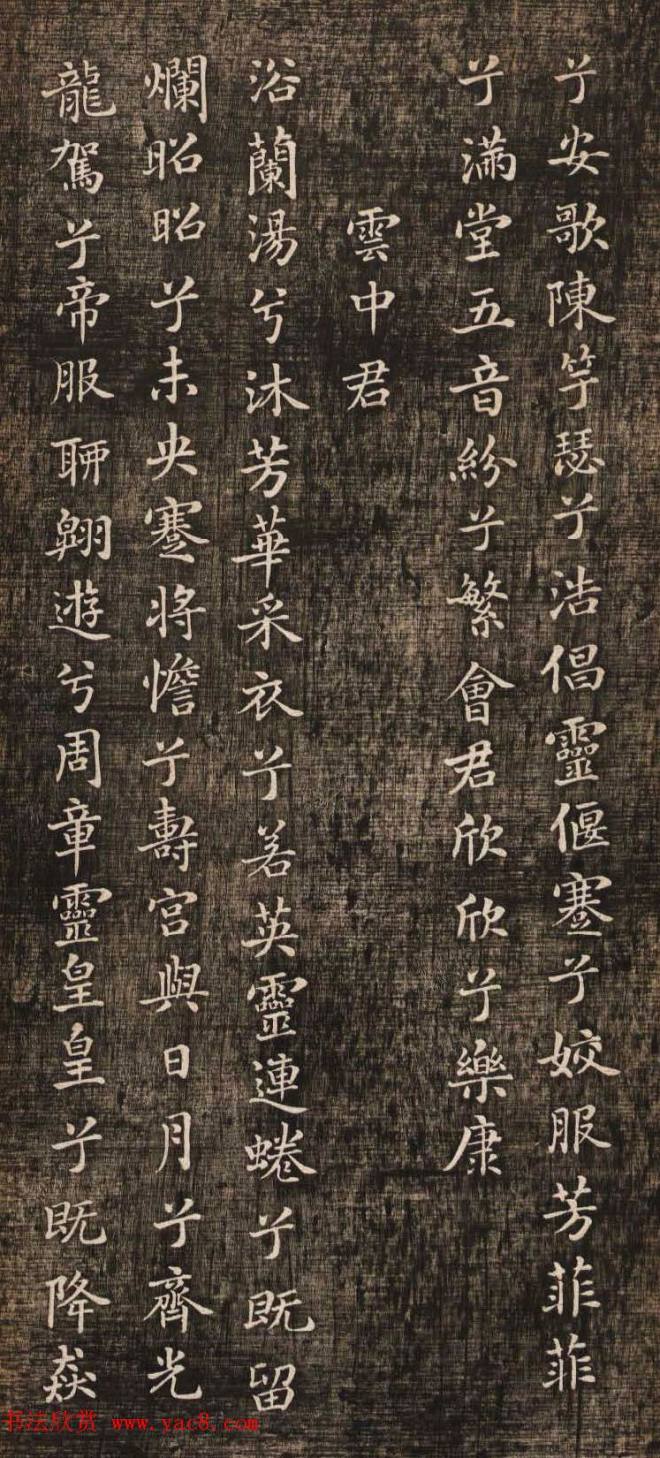 兮安歌陳竽瑟兮浩倡靈偃蹇兮姣服芳菲菲
兮滿堂五音紛兮繁會君欣欣兮樂康
雲中君
浴蘭湯兮沐芳華采衣兮若英靈連蜷兮既留
爛昭昭兮未央蹇將憺兮壽宮與日月兮齊光
龍駕兮帝服聊翱遊兮周章靈皇皇兮既降猋
书法欣赏 www.yac8.com